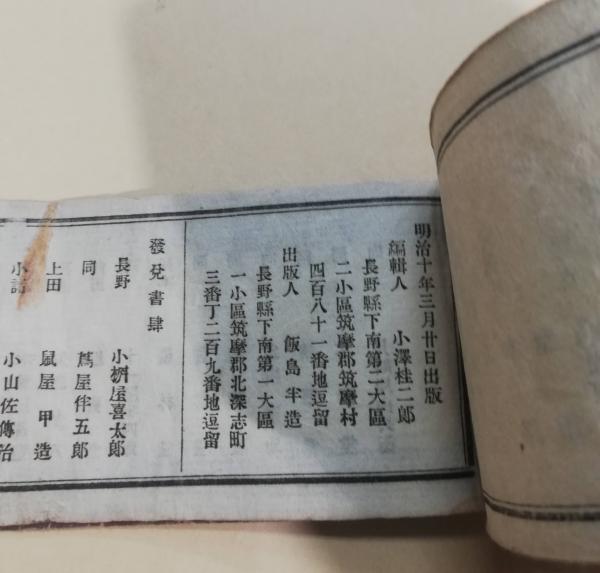 明治十年三月廿日出版
編輯人 小澤桂二郎
長野縣下南第二大區
二小區筑摩郡筑摩村
四百八十一番地逗留
出版人 飯島半造
長野縣下南第一大區
一小區筑摩郡北深志町
三番丁二百九番地逗留
發兌書肆
長野 小桝屋喜太郎
同 蔦屋伴五郎
上田 鼠屋甲造
小諸 小山佐傳治